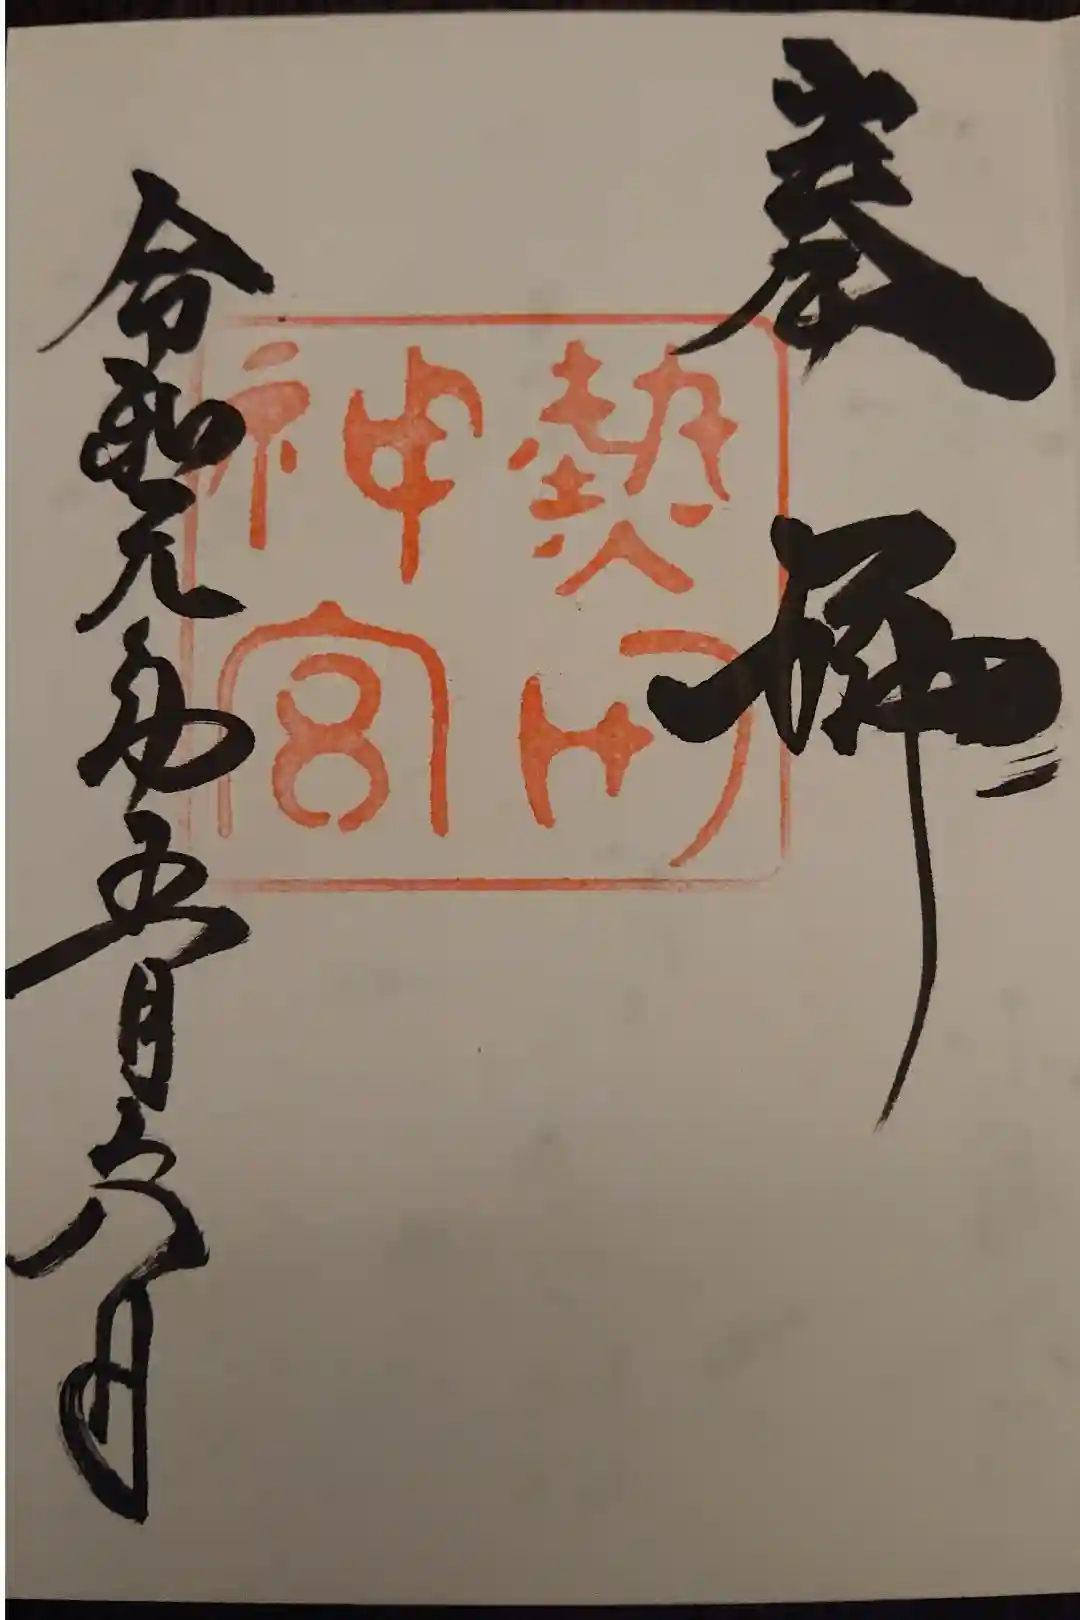 奉拝
熱田
神宮
令和元年五月六日